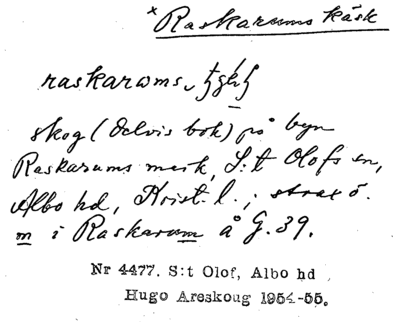 × Raskarums käsk
raskarums
skog (delvis bok) på byn
Raskarums mark, S:t Olofs sn,
Albo hd, Krist. l.; strax ö.
m i Raskarum å G. 39.
Nr 4477. S:t Olof, Albo hd
Hugo Areskoug 1954-55.